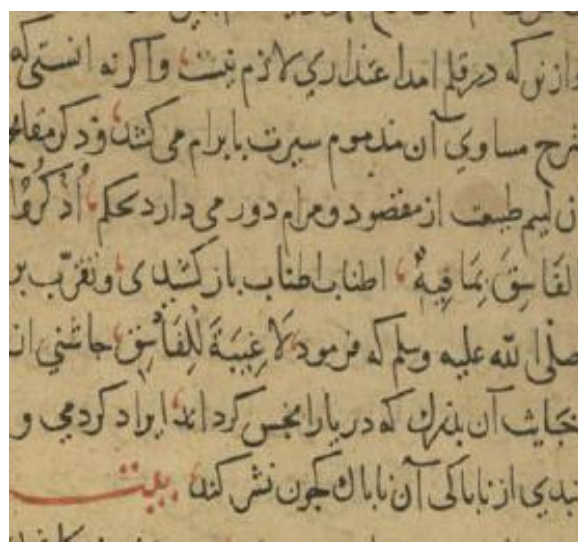 ازین که در قلم امدا عذاری لازم نیست واکرنه انستی که
شرح مساوی آن مذموم سیرت بابرام می کشد وذکر مقابح
ان لییم طبیعت از مقصود ومرام دور می دارد بحکم اُذْکُرُوا
الفَاسِقَ بِمَا فِیهِ اطناب اطناب باز کشیدی وتقرّب بر
صلّی الله علیه وسلم که فرمود لَا غِیبَةَ لِلْفَاسِقِ جاشنی از
خبایث آن بذرك که دریا را نجس کرداند ایراد کردمی و
نبدی از ناباکی آن ناباك کجون نشر کند بیت